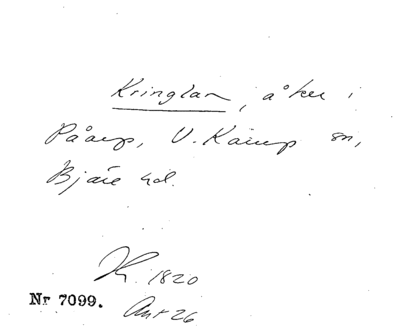 Kringlan, åker i
Påarp, V. Karup sn,
Bjäre hd.
K. 1820
Nr 7099.
Akt 26